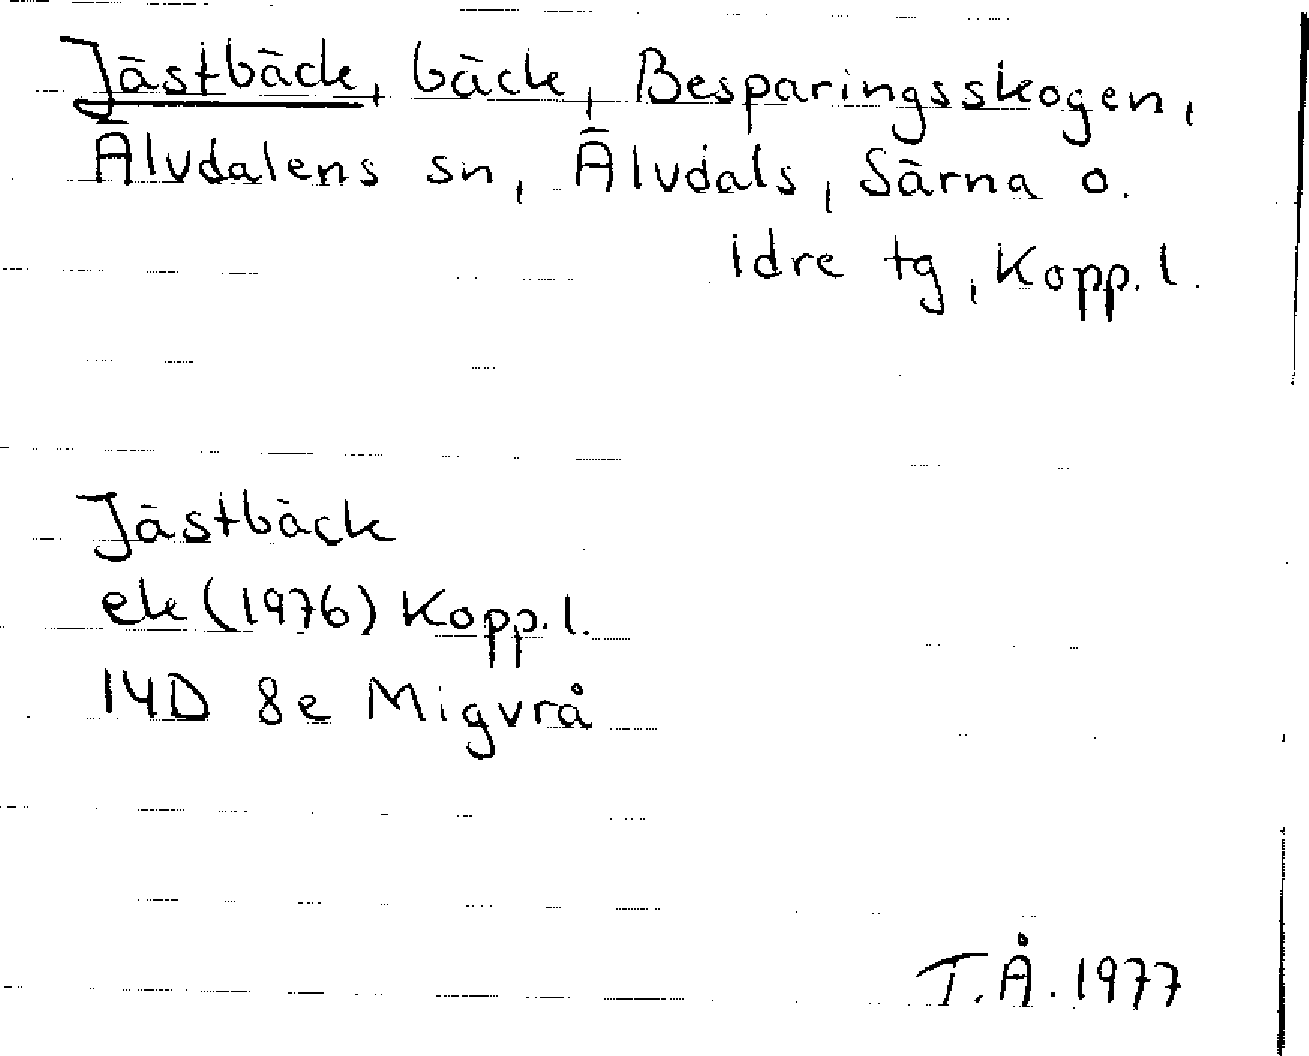 Jästbäck, bäck, Besparingsskogen,
Älvdalens sn, Älvdals, Särna o.
idre tg, Kopp. l.
Jästbäck
ek (1976) Kopp. l.
14D 8e Migvrå
T.Å. 1977